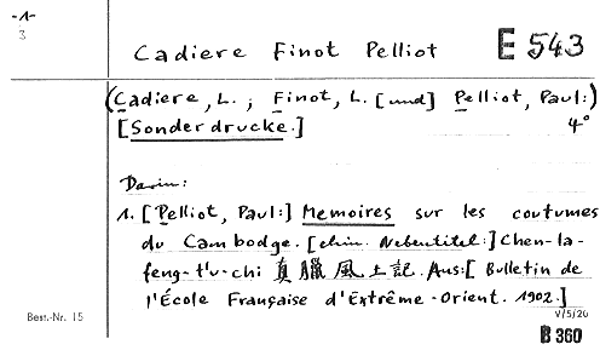 -1-
3
Cadiere Finot Pelliot E 543
(Cadiere, L. ; Finot, L. [und] Pelliot, Paul:)
[Sonderdrucke.] 4°
Darin:
1. [Pelliot, Paul:] Memoires sur les coutumes
du Cambodge. [chin. Nebentitel:] Chen-la-
feng-t'u-chi 真臘風土記. Aus: [Bulletin de
l'École Française d'Extrême-Orient. 1902.]
Best.-Nr. 15 V/5/20
B 360